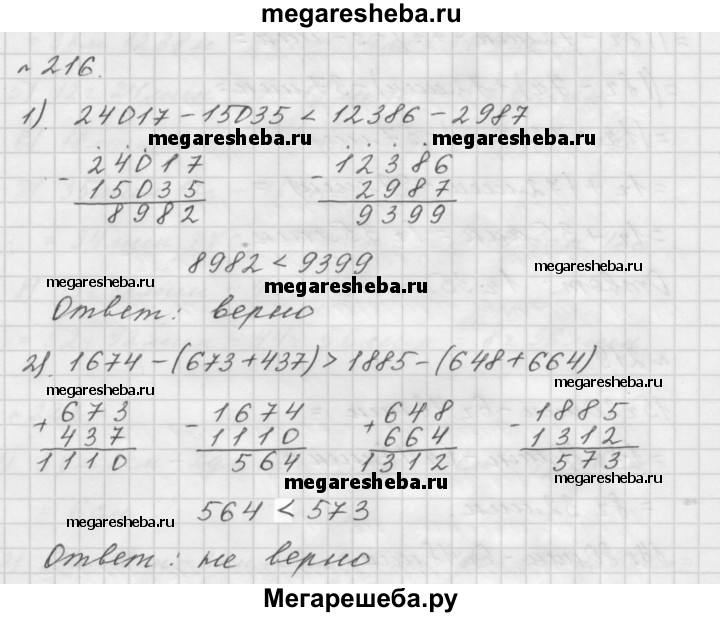 megaresheba.ru
№ 216.
1). 24017 - 15035 < 12386 - 2987
megaresheba.ru megaresheba.ru
- 24017 - 12386
15035 2987
8982 9399
8982 < 9399
megaresheba.ru megaresheba.ru megaresheba.ru
Ответ: верно
2). 1674 - (673 + 437) > 1885 - (648 + 664)
megaresheba.ru megaresheba.ru
+ 673 - 1674 + 648 - 1885
437 1110 664 1312
1110 564 1312 573
megaresheba.ru megaresheba.ru
564 < 573
megaresheba.ru
Ответ: не верно
megaresheba.ru
Мегарешеба.ру